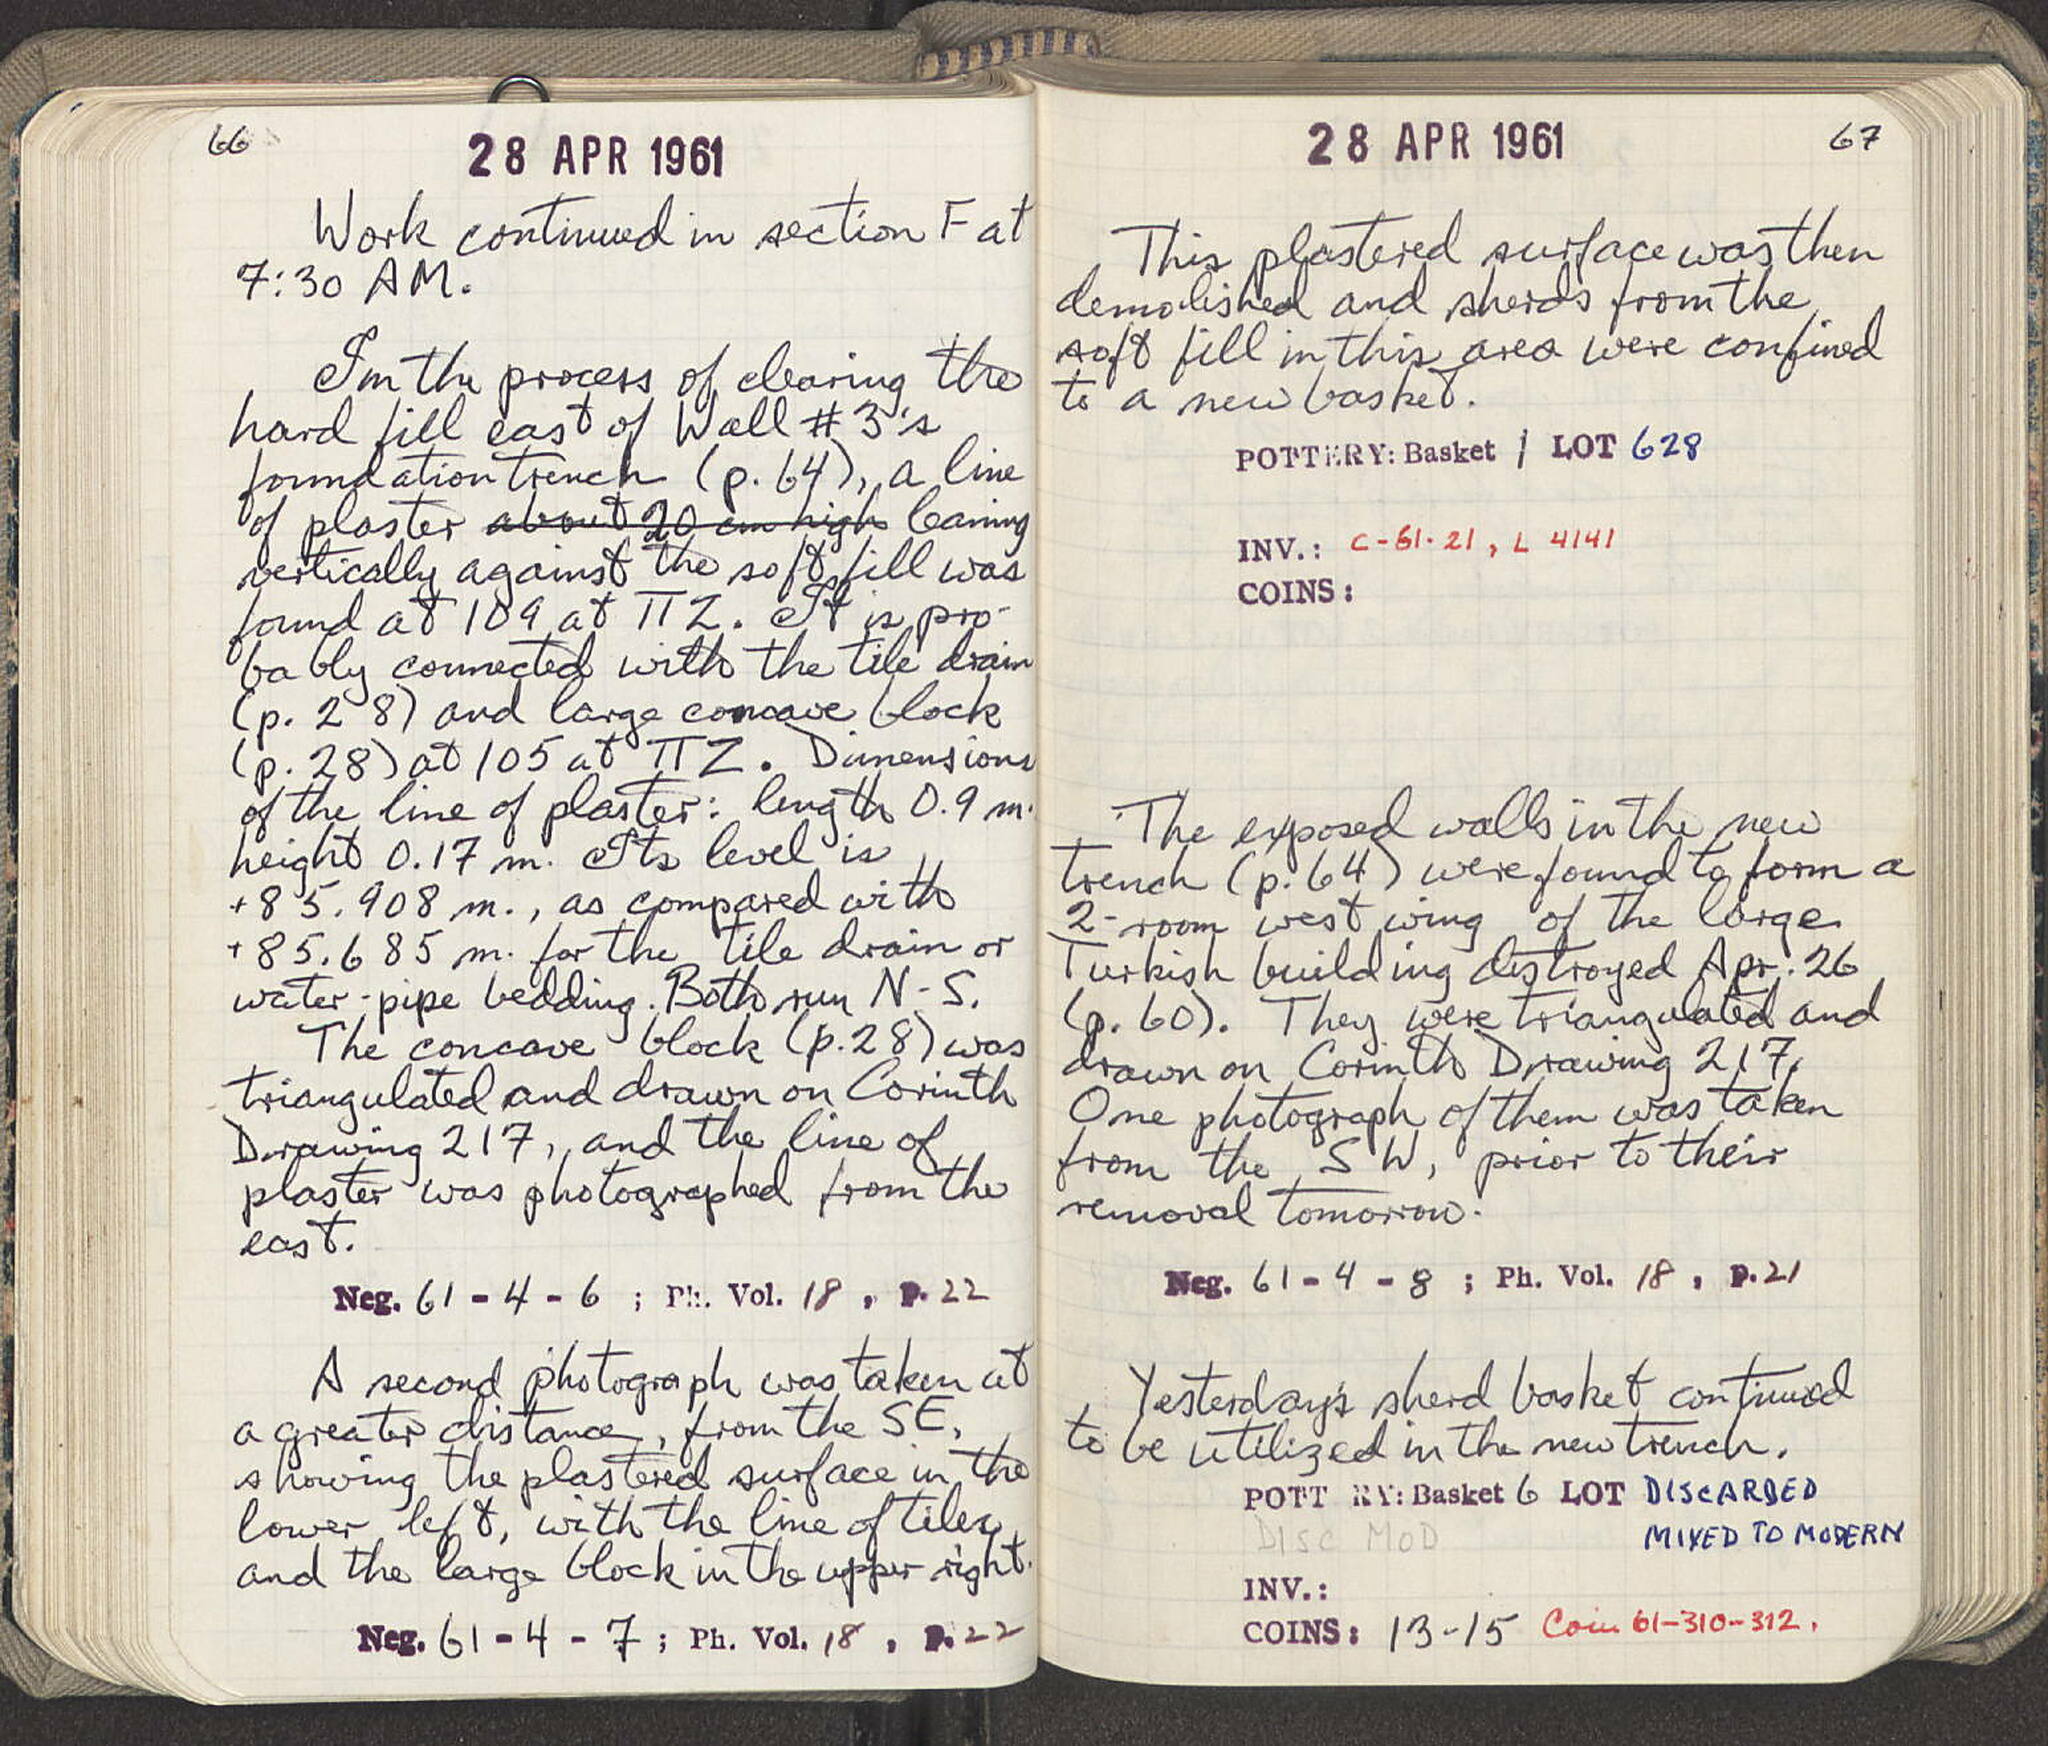 66
28 APR 1961
Work continued in section F at
7:30 AM.
In the process of clearing the
hard fill east of Wall #3's
foundation trench (p. 64), a line
of plaster about 20 cm high leaning
vertically against the soft fill was
found at 109 at ΠZ. It is pro-
bably connected with the tile drain
(p. 28) and large concave block
(p. 28) at 105 at ΠZ. Dimensions
of the line of plaster: length 0.9 m.
height 0.17 m. Its level is
+85.908 m., as compared with
+85.685 m. for the tile drain or
water-pipe bedding. Both run N-S.
The concave block (p. 28) was
triangulated and drawn on Corinth
Drawing 217, and the line of
plaster was photographed from the
east.
Neg. 61 - 4 - 6 ; Ph. Vol. 18 , p. 22
A second photograph was taken at
a greater distance, from the SE,
showing the plastered surface in the
lower left, with the line of tiles
and the large block in the upper right.
Neg. 61 - 4 - 7 ; Ph. Vol. 18 , p. 22
67
28 APR 1961
This plastered surface was then
demolished and sherds from the
soft fill in this area were confined
to a new basket.
POTTERY: Basket 1 LOT 628
INV.: C-61-21, L 4141
COINS:
The exposed walls in the new
trench (p. 64) were found to form a
2-room west wing of the large
Turkish building destroyed Apr. 26
(p. 60). They were triangulated and
drawn on Corinth Drawing 217.
One photograph of them was taken
from the SW, prior to their
removal tomorrow.
Neg. 61 - 4 - 8 ; Ph. Vol. 18 , p. 21
Yesterday's sherd basket continued
to be utilized in the new trench.
POTT RY: Basket 6 LOT DISCARDED
DISC MOD MIXED TO MODERN
INV.:
COINS: 13-15 Coin 61-310-312.